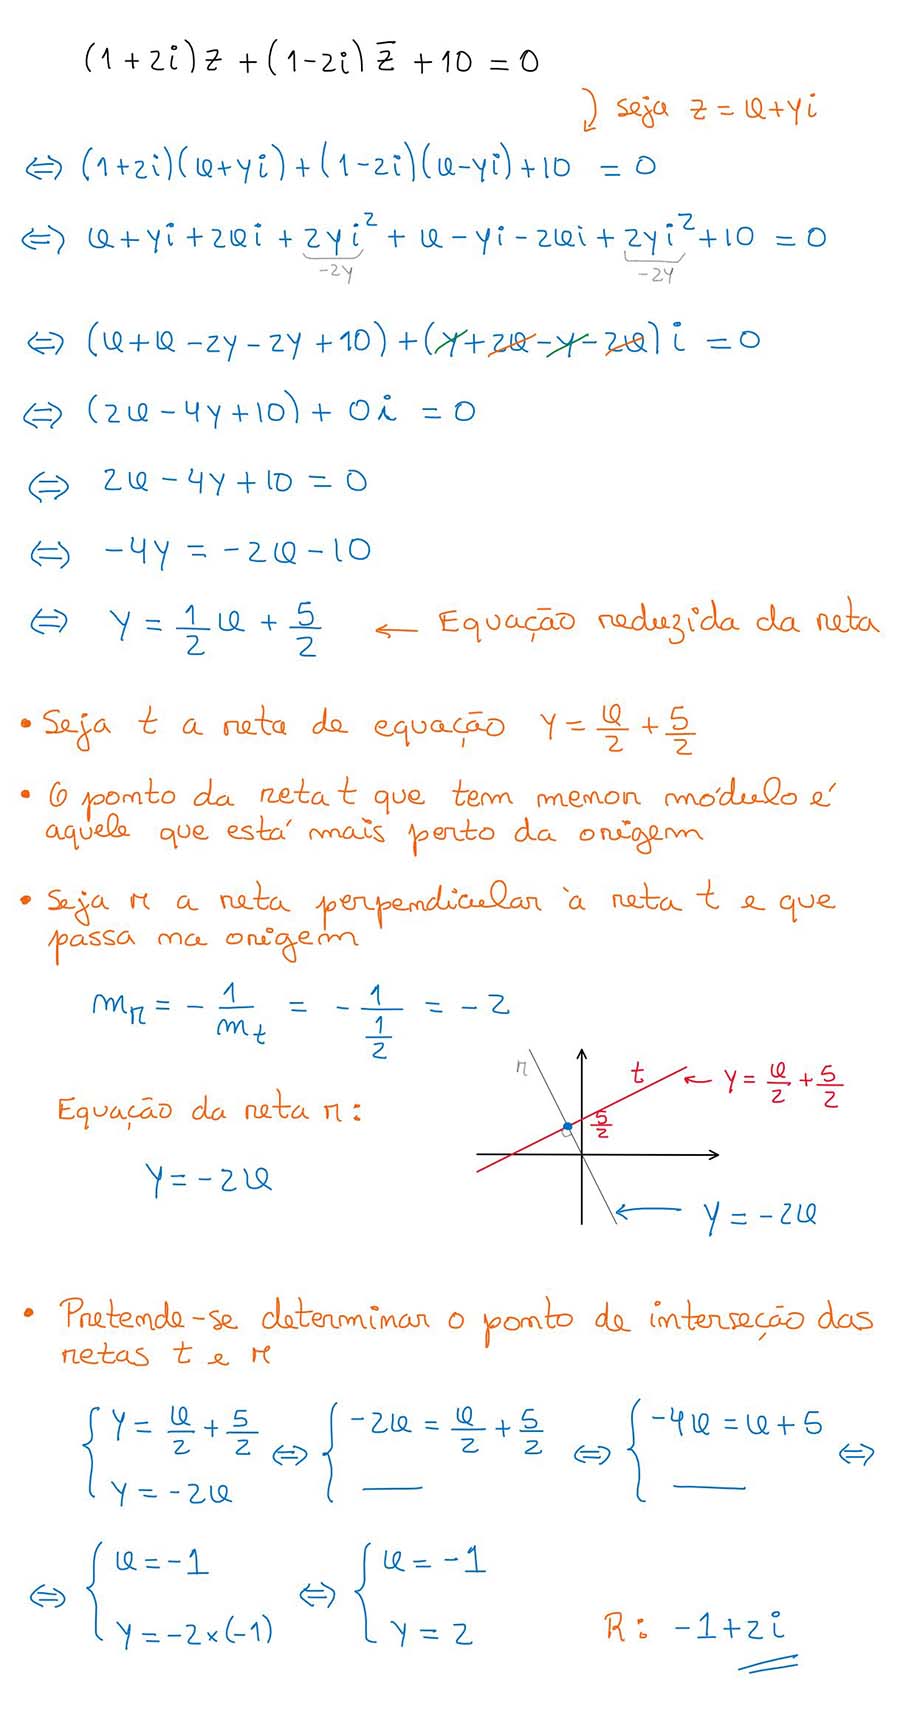 (1+2i)z+(1-2i)z̅+10=0
seja z=x+yi
⇔ (1+2i)(x+yi)+(1-2i)(x-yi)+10=0
⇔ x+yi+2xi+2yi²+x-yi-2xi+2yi²+10=0
-2y -2y
⇔ (x+x-2y-2y+10)+(y+2x-y-2x)i=0
⇔ (2x-4y+10)+0i=0
⇔ 2x-4y+10=0
⇔ -4y=-2x-10
⇔ y=1/2x+5/2 ← Equação reduzida da reta
• Seja t a reta de equação y=x/2+5/2
• O ponto da reta t que tem menor módulo é
aquele que está mais perto da origem
• Seja r a reta perpendicular à reta t e que
passa na origem
m_r=-1/m_t=-1/(1/2)=-2
r t ← y=x/2+5/2
5/2
Equação da reta r:
y=-2x
← y=-2x
• Pretende-se determinar o ponto de interseção das
retas t e r
{ y=x/2+5/2 ⇔ { -2x=x/2+5/2 ⇔ { -4x=x+5 ⇔
y=-2x —— ——
⇔ { x=-1 ⇔ { x=-1
y=-2×(-1) y=2 R: -1+2i